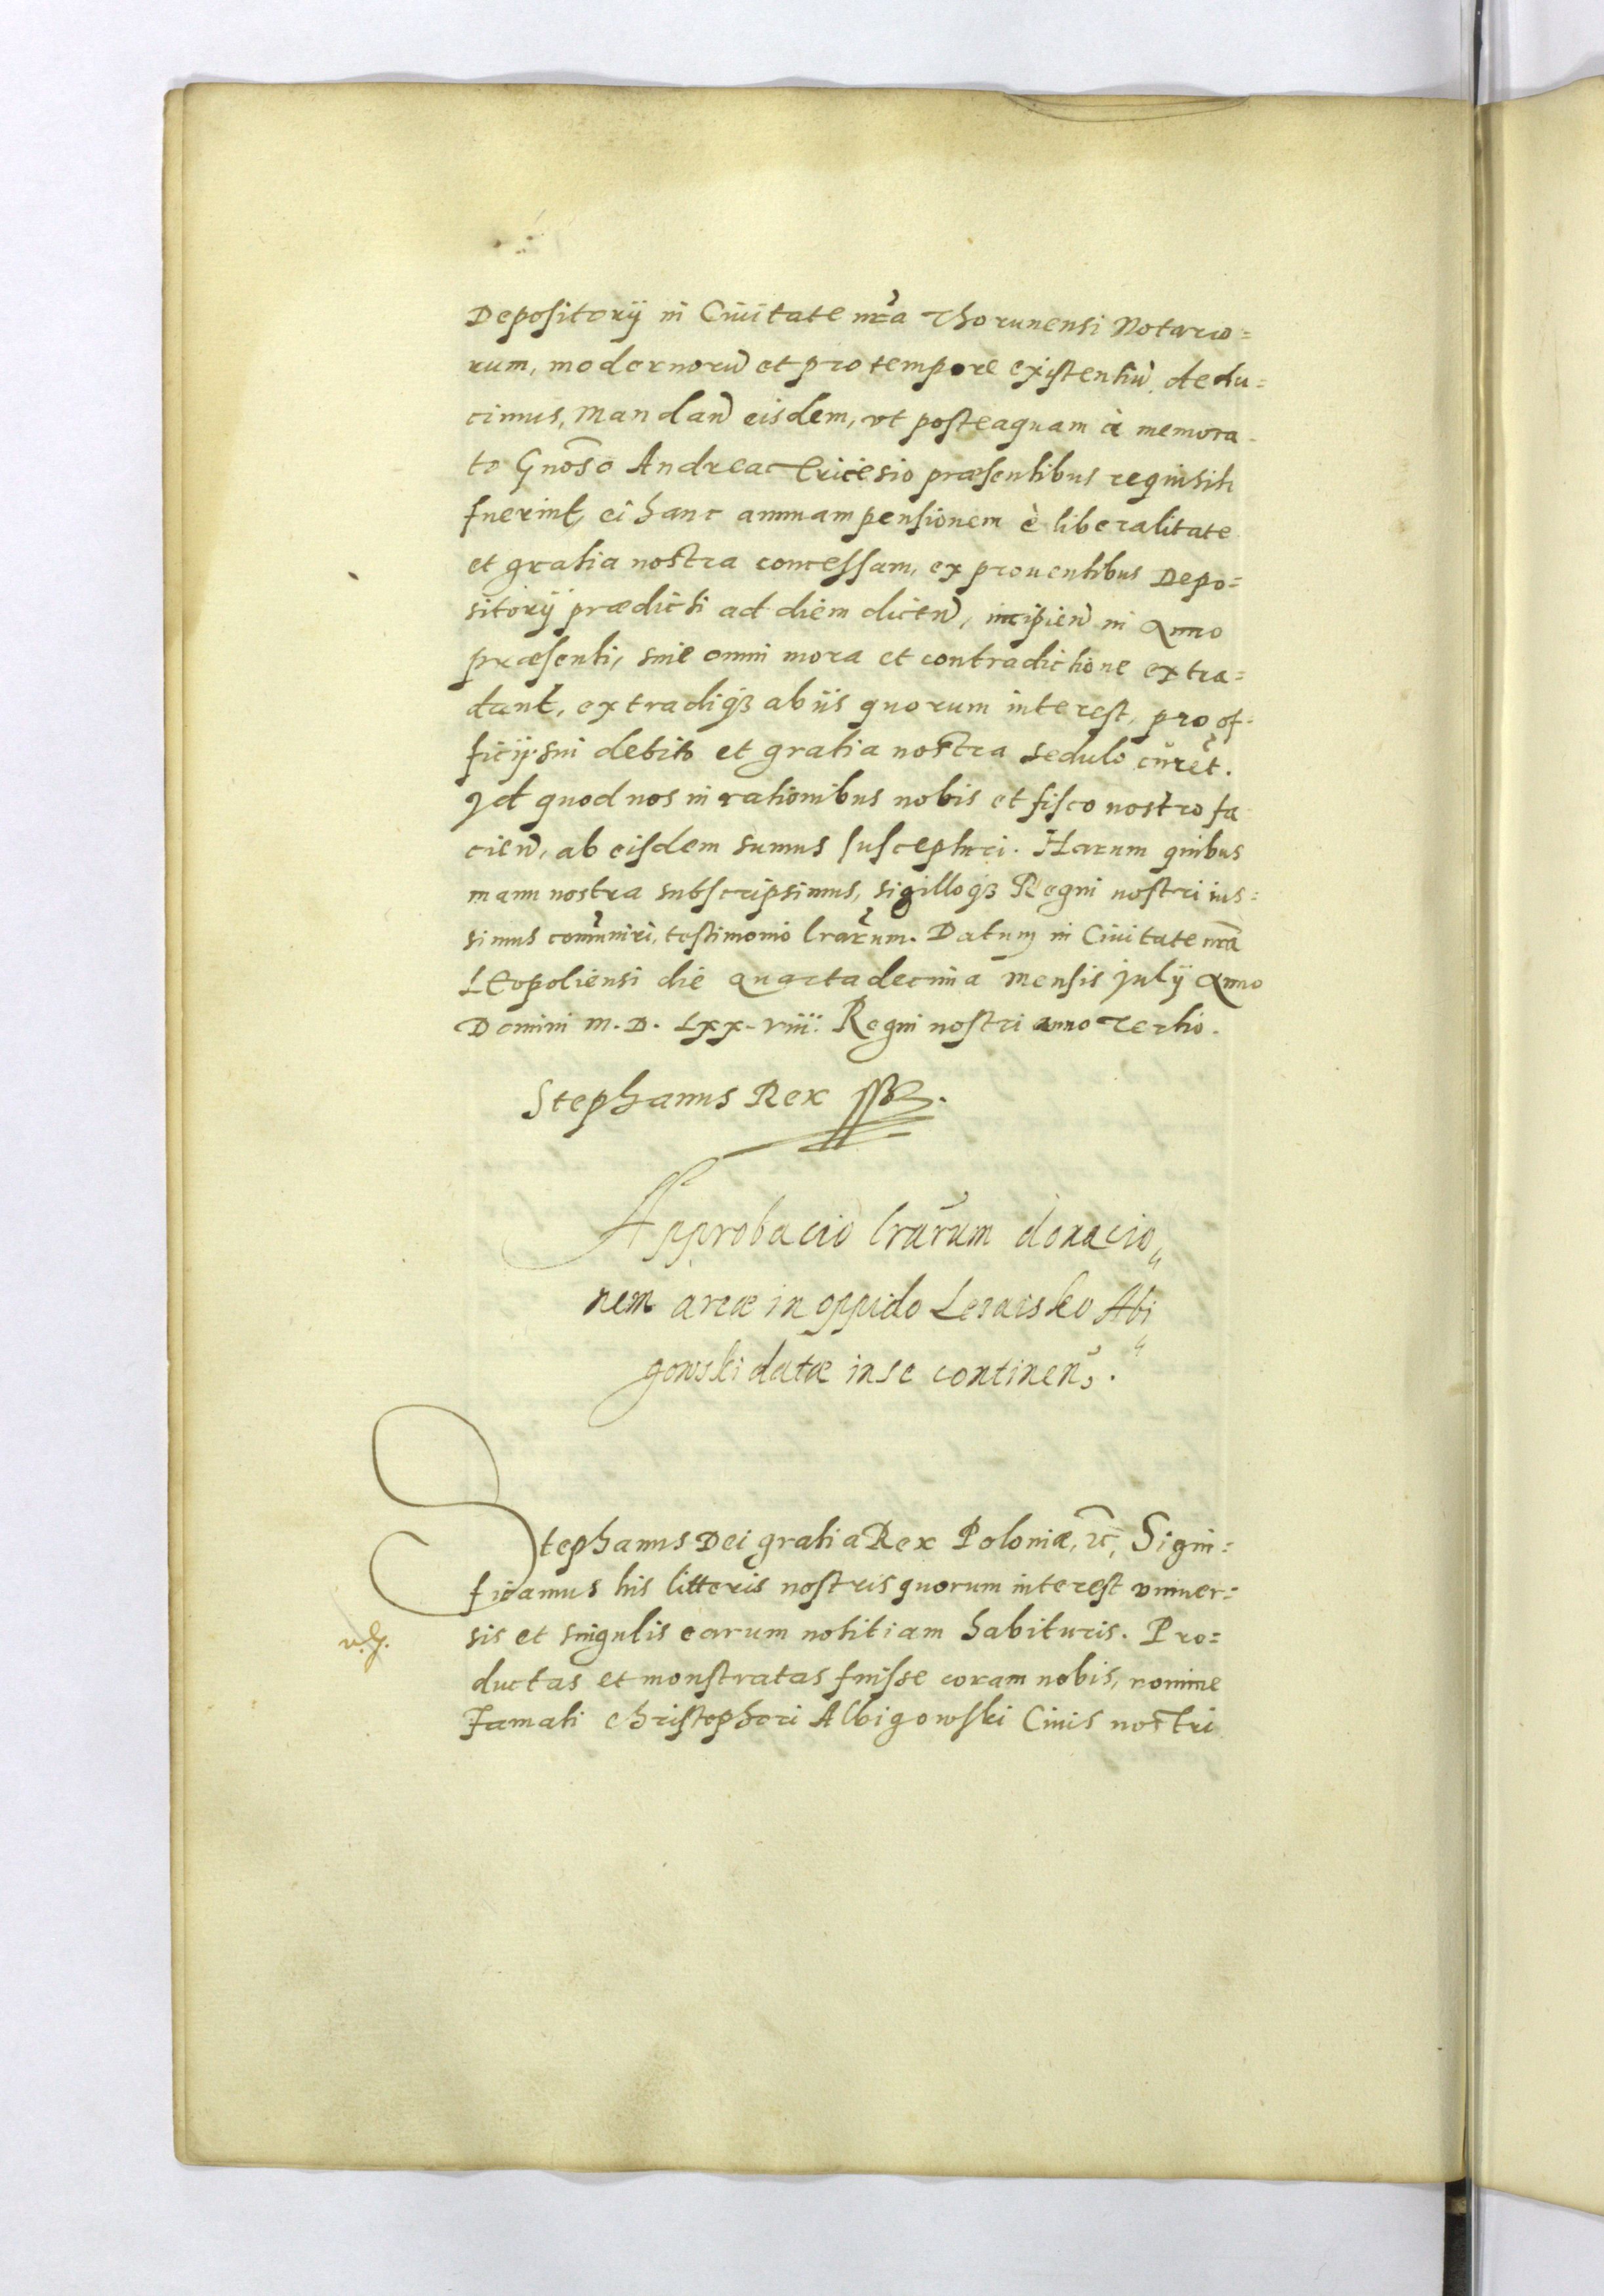 Depositorÿ in Ciuitate nr̃a Thorunensi Notario=
rum, modernorũ et pro tempore existentiũ, dedu=
cimus, Mandañ eisdem, vt posteaquam à memora-
to Gnõso Andrea Tricesio præsentibus requisiti
fuerint, ei hanc annuam pensionem è liberalitate
et gratia nostra concessam, ex prouentibus Depo=
sitorÿ prædicti ad diem dicteñ, incipieñ in Anno
præsenti, sine omni mora et contradictione extra=
dant, extradiq3 ab iis quorum interest, pro of-
ficÿ sui debito et gratia nostra sedulo cureñt.
Id quod nos in rationibus nobis et fisco nostro fa
cieñ, ab eisdem sumus suscepturi. Harum quibus
manu nostra subscripsimus, sigilloq3 Regni nostri ius=
simus com̃uniri, testimonio lrar̃um. Datum in Ciuitate nr̃a
LEopoliensi die quarta decima mensis Julÿ Anno
Domini M. D. LXX-viii. Regni nostri anno Tertio.
Stephanus Rex
Approbacio lrar̃um donacio„
nem areæ in oppido Lezaisko Abi„
gowski datæ in se continen̄.
Stephanus Dei gratia Rex Poloniæ, etc̃, Signi=
ficamus his litteris nostris quorum interest vniuer=
sis et singulis earum notitiam habituris. Pro=
ductas et monstratas fuisse coram nobis, nomine
Famati Christophori Albigowski Ciuis nostri